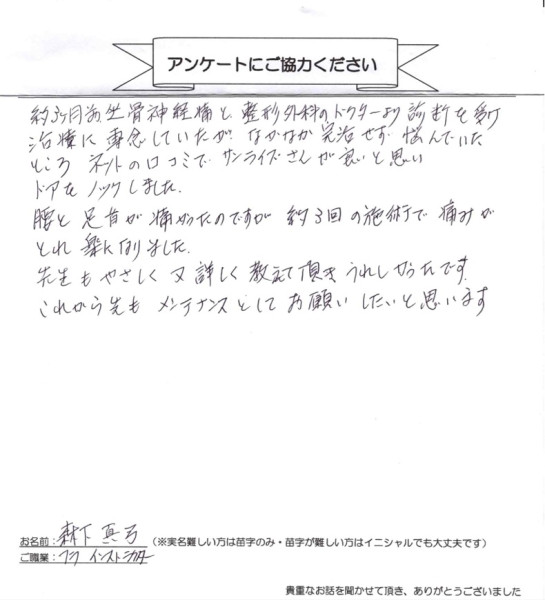 アンケートにご協力ください
約3ヶ月前、坐骨神経痛と、整形外科のドクターより診断を受け
治療に専念していたが、なかなか完治せず悩んでいた
ところ ネットの口コミで、サンライズさんが良いと思い
ドアをノックしました。
腰と足首が痛かったのですが 約3回の施術で痛みが
とれ 楽になりました。
先生もやさしく 又 詳しく教えて頂き うれしかったです。
これから先も メンテナンスとして お願いしたいと思います
お名前：森下 真弓 （※実名難しい方は苗字のみ・苗字が難しい方はイニシャルでも大丈夫です）
ご職業：フラ インストラクター
貴重なお話を聞かせて頂き、ありがとうございました